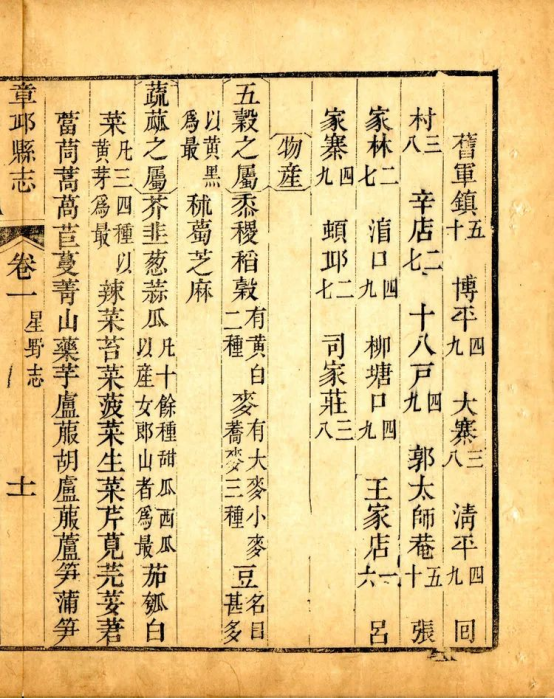 舊軍鎮五十 博平四九 大寨三八 清平四九 回
村三八 辛店二七 十八戸四九 郭太師菴五十 張
家林二七 湝口四九 柳塘口四九 王家店一六 呂
家寨四九 頓邱二七 司家莊三八
物産
五穀之屬 黍稷稻穀有黄白二種 麥有大麥小麥蕎麥三種 豆名目甚多
以黄黑爲最 秫蔔芝麻
蔬蓏之屬 芥韭葱蒜瓜凡十餘種甜瓜西瓜以産女郎山者爲最 茄瓠白
菜凡三四種以黄芽爲最 辣菜苔菜菠菜生菜芹莧芫荽莙
茼蒿萵苣蔓菁山藥芋蘆菔胡蘆菔蘆笋蒲笋
章邱縣志 卷一 星野志 十一